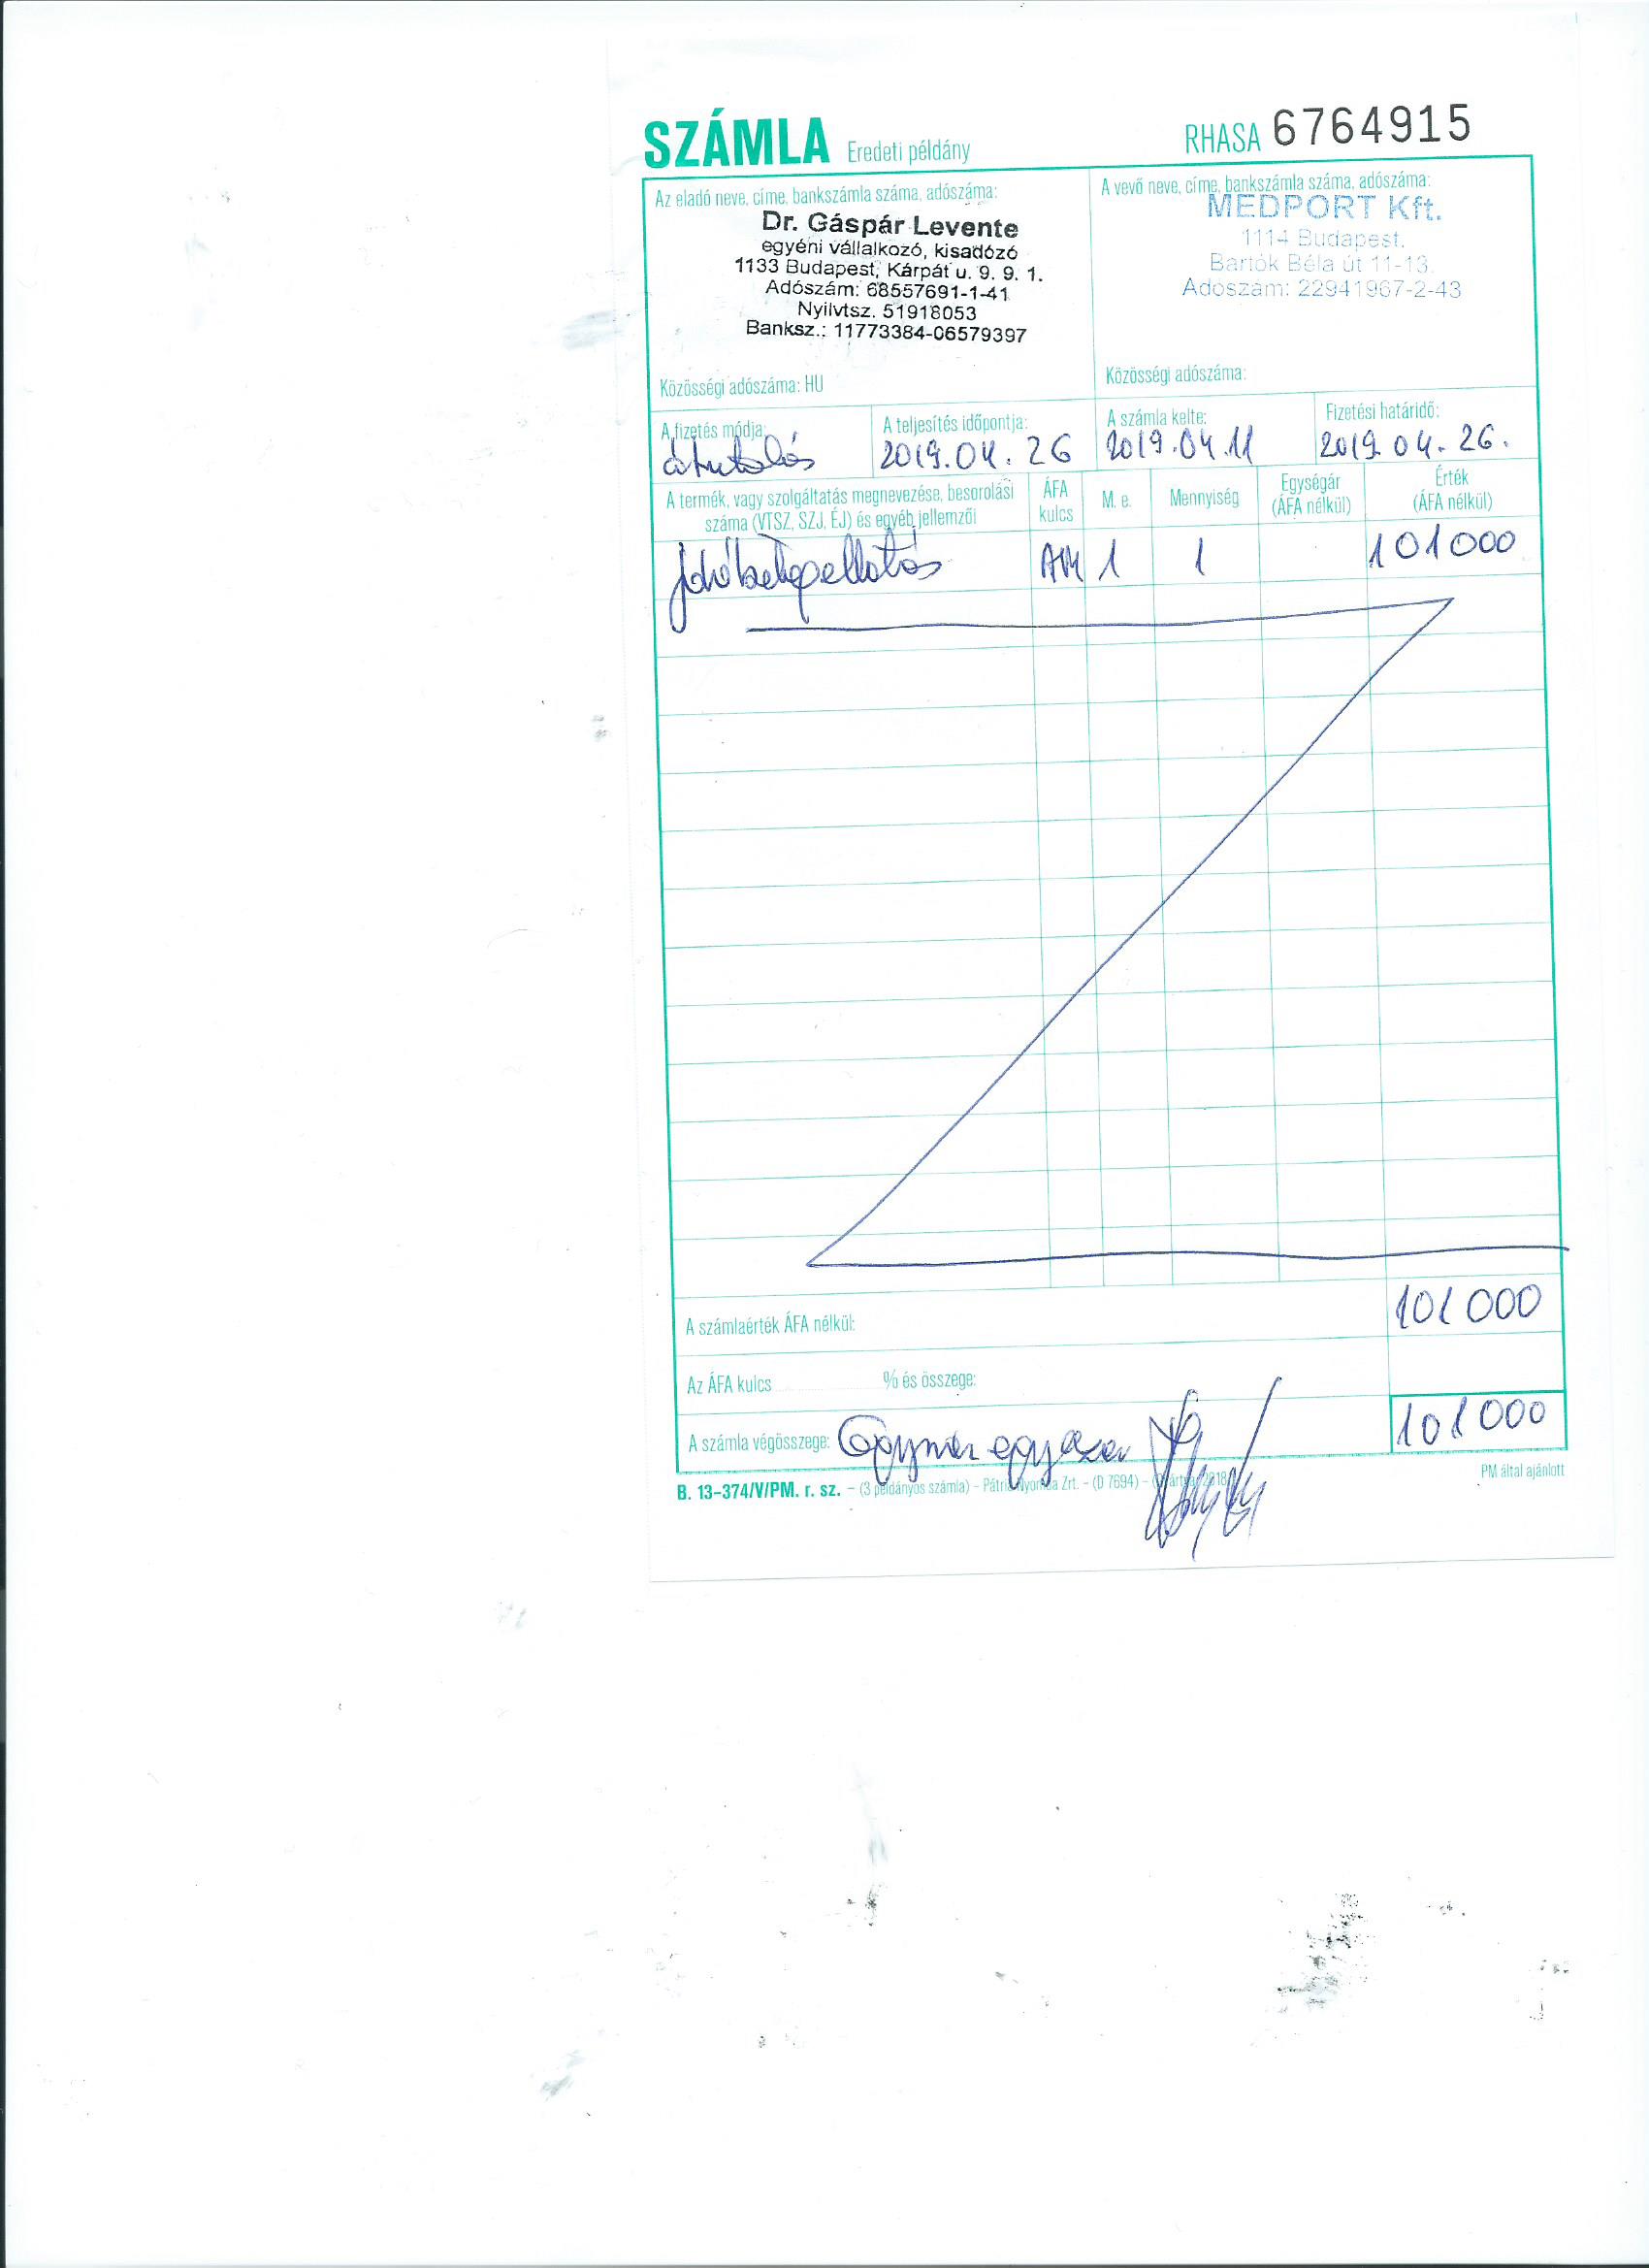 SZÁMLA Eredeti példány RHASA 6764915
Az eladó neve, címe, bankszámla száma, adószáma:
Dr. Gáspár Levente
egyéni vállalkozó, kisadózó
1133 Budapest, Kárpát u. 9. 9. 1.
Adószám: 68557691-1-41
Nyilvtsz. 51918053
Banksz.: 11773384-06579397
Közösségi adószáma: HU
A vevő neve, címe, bankszámla száma, adószáma:
MEDPORT Kft.
1114 Budapest,
Bartók Béla út 11-13.
Adószám: 22941967-2-43
Közösségi adószáma:
A fizetés módja:
átutalás
A teljesítés időpontja:
2019.04.26
A számla kelte:
2019.04.11
Fizetési határidő:
2019.04.26.
A termék, vagy szolgáltatás megnevezése, besorolási
száma (VTSZ, SZJ, ÉJ) és egyéb jellemzői
ÁFA
kulcs
M. e.
Mennyiség
Egységár
(ÁFA nélkül)
Érték
(ÁFA nélkül)
járóbetegellátás AM 1 1 101000
A számlaérték ÁFA nélkül: 101000
Az ÁFA kulcs % és összege:
A számla végösszege: 101000
B. 13-374/V/PM. r. sz. – (3 példányos számla) – Pátria Nyomda Zrt. – (D 7694) –
PM által ajánlott